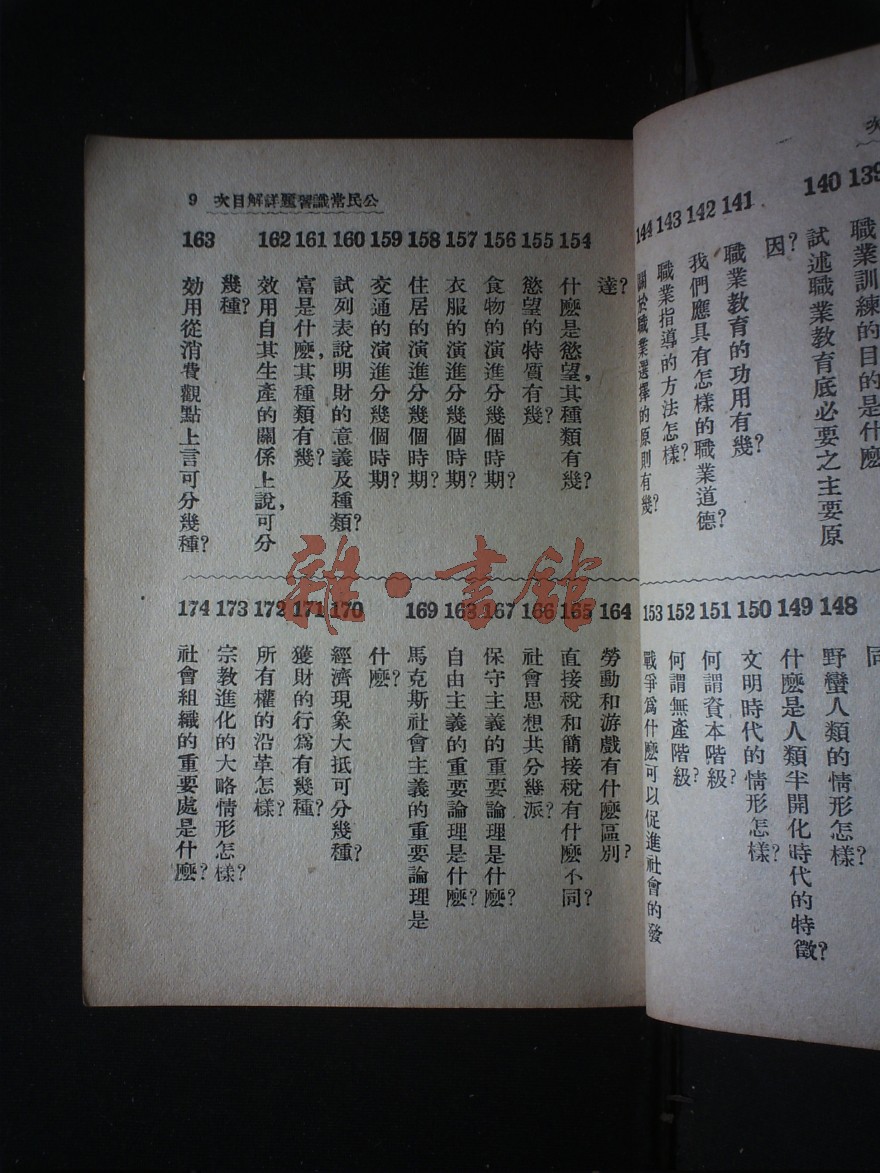 次
139
職業訓練的目的是什麽
140
試述職業教育底必要之主要原
因?
141
職業教育的功用有幾?
142
我們應具有怎樣的職業道德?
143
職業指導的方法怎樣?
144
關於職業選擇的原則有幾?
同
148
野蠻人類的情形怎樣?
149
什麽是人類半開化時代的特徵?
150
文明時代的情形怎樣?
151
何謂資本階級?
152
何謂無產階級?
153
戰爭爲什麽可以促進社會的發
公民常識習題詳解目次
9
達?
154
什麽是慾望,其種類有幾?
155
慾望的特質有幾?
156
食物的演進分幾個時期?
157
衣服的演進分幾個時期?
158
住居的演進分幾個時期?
159
交通的演進分幾個時期?
160
試列表說明財的意義及種類?
161
富是什麽,其種類有幾?
162
效用自其生產的關係上說,可分
幾種?
163
効用從消費觀點上言可分幾種?
164
勞動和游戲有什麽區別?
165
直接稅和簡接稅有什麽不同?
166
社會思想共分幾派?
167
保守主義的重要論理是什麽?
163
自由主義的重要論理是什麽?
169
馬克斯社會主義的重要論理是
什麽?
170
經濟現象大抵可分幾種?
171
獲財的行爲有幾種?
172
所有權的沿革怎樣?
173
宗教進化的大略情形怎樣?
174
社會組織的重要處是什麽?
雜·書館